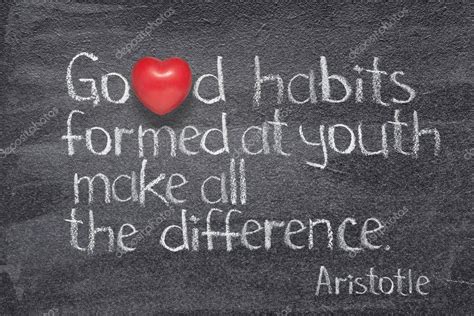 Good habits
formed at youth
make all
the difference.
Aristotle